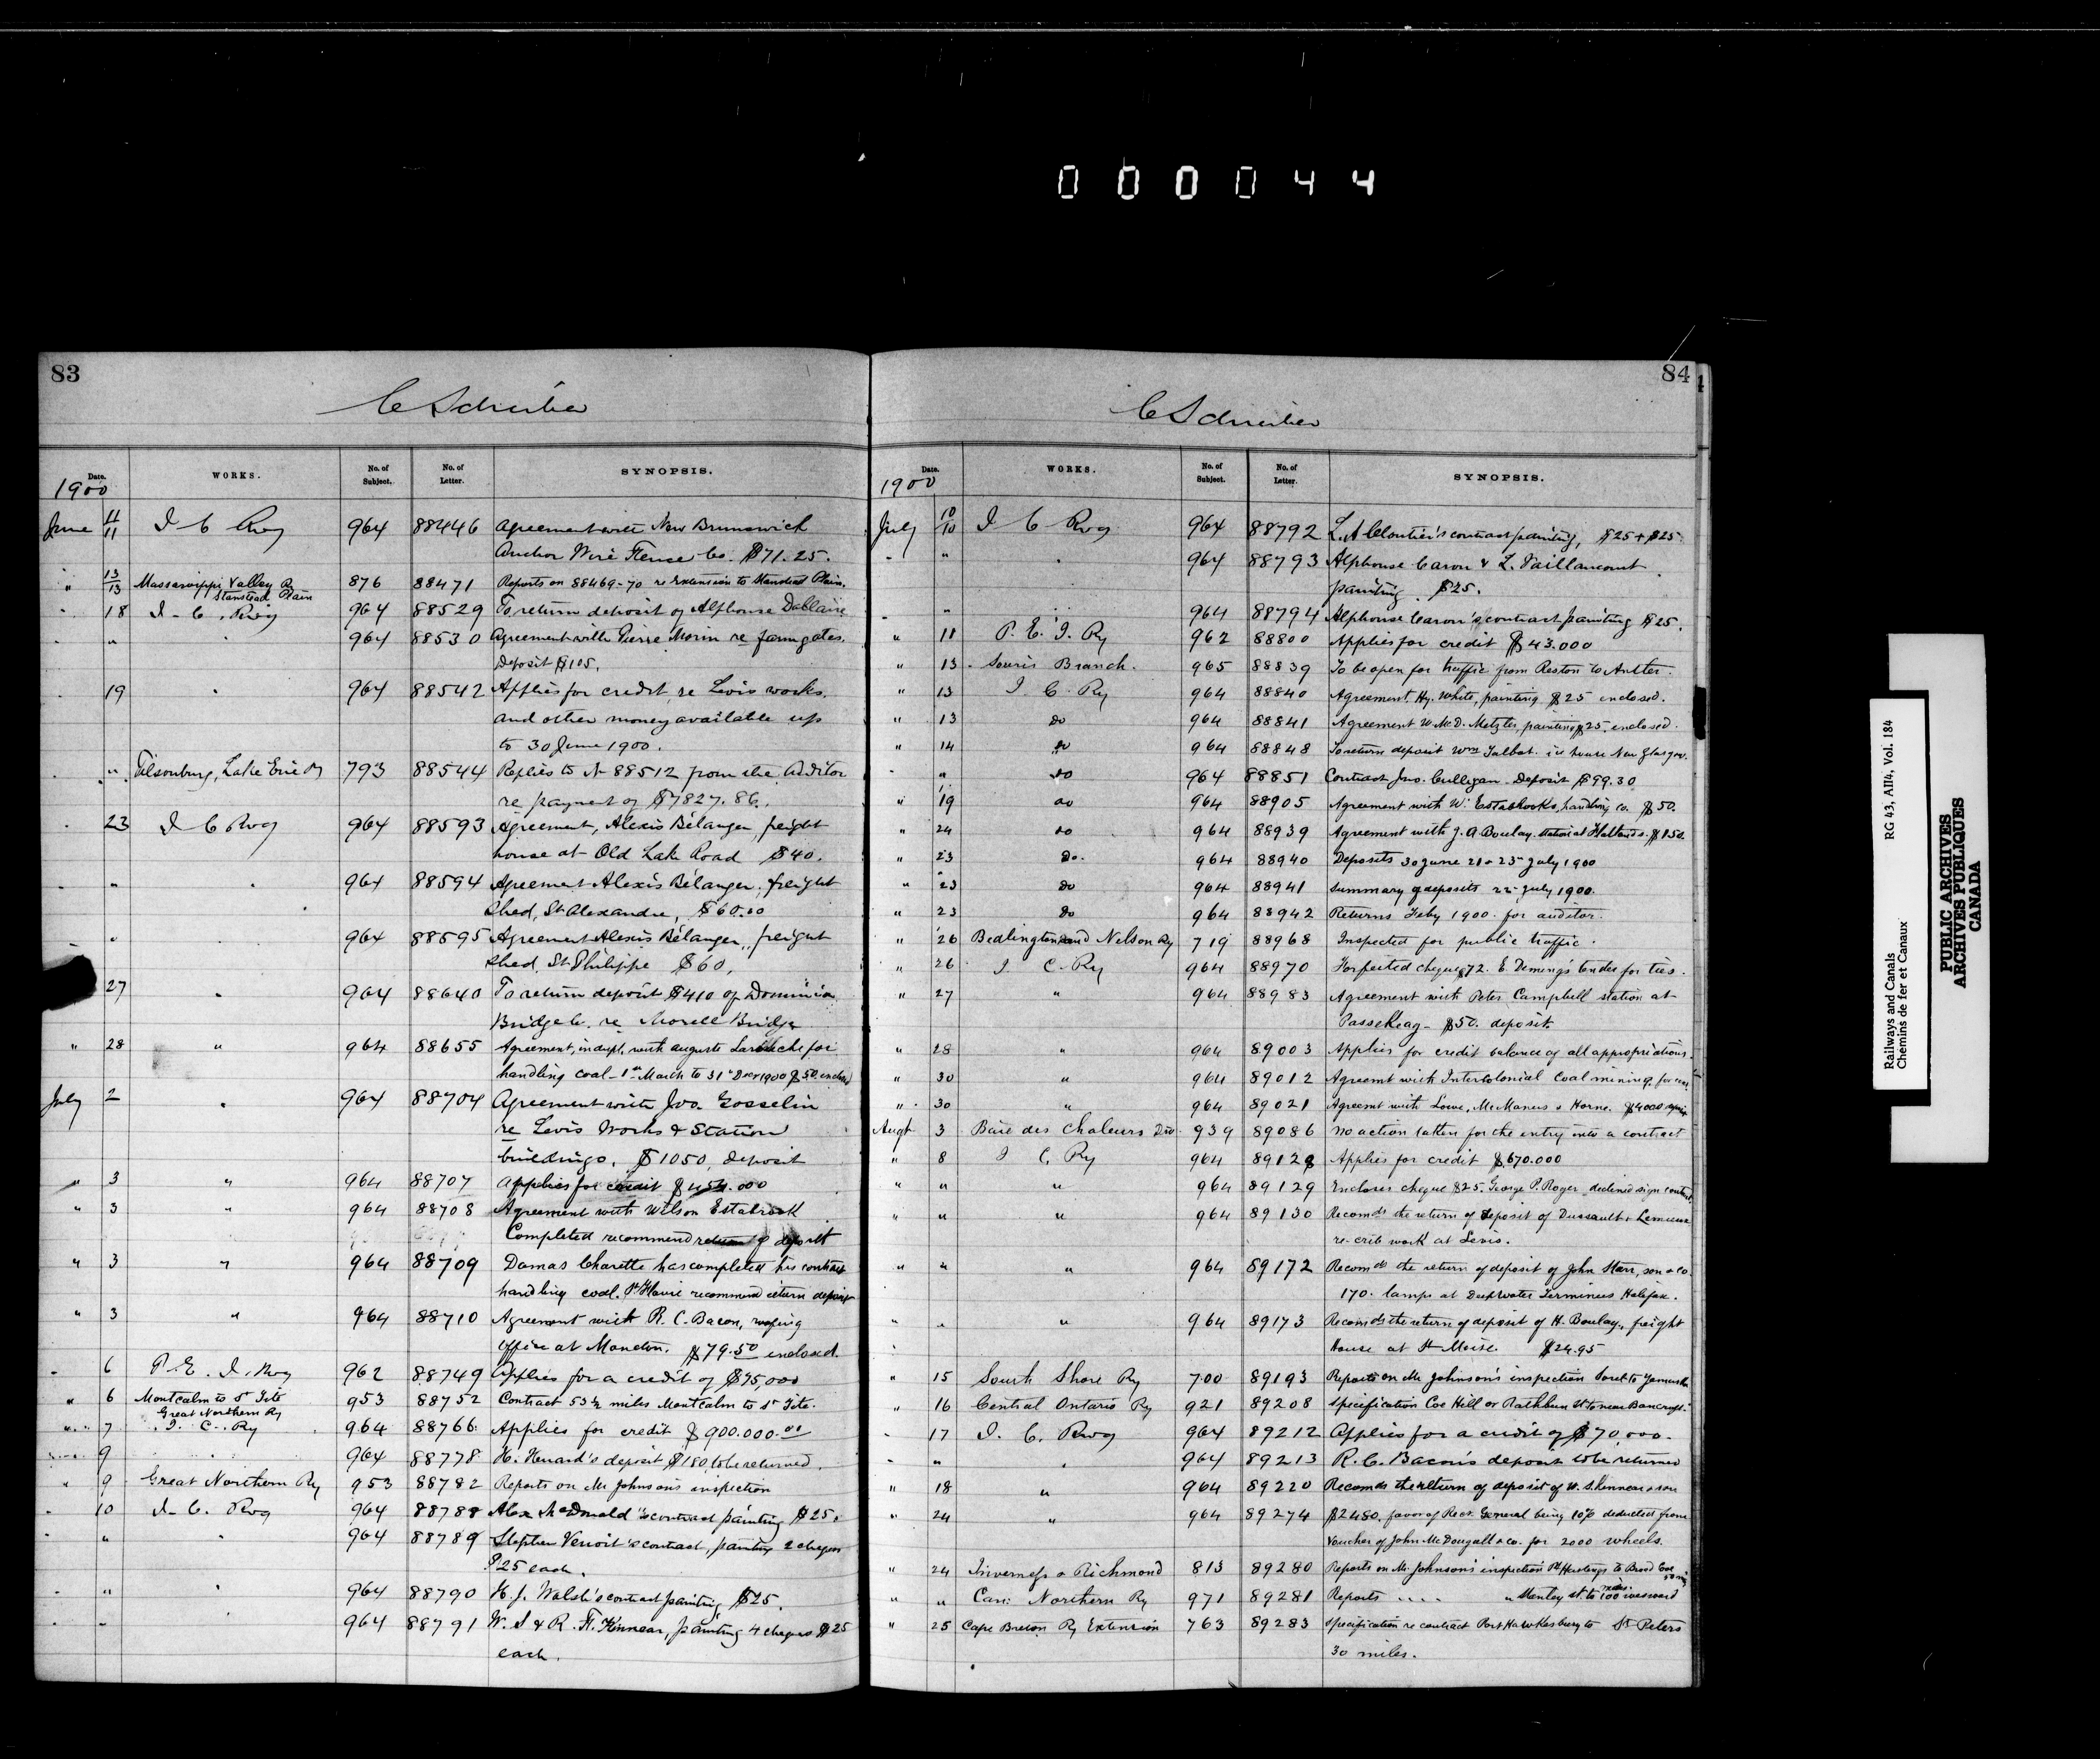 000044
83
C Schreiber
Date. WORKS. No. of Subject. No. of Letter. SYNOPSIS.
1900
June 11/11 I C Rwy 964 88446 Agreement with New Brunswick
Anchor Wire Fence Co. $71.25.
" 13/13 Massawippi Valley Ry 876 88471 Reports on 88469-70 re Extension to Stanstead Plain.
Stanstead Plain
" 18 I. C. Rwy 964 88529 To return deposit of Alphonse Dallaire
" " " 964 88530 Agreement with Pierre Morin re farm gates.
Deposit $105.
" 19 " 964 88542 Applies for credit re Levis works.
and other money available up
to 30 June 1900.
" " Tilsonburg, Lake Erie Ry 793 88544 Replies to No 88512 from the Auditor
re payment of $7827.86.
" 23 I C Rwy 964 88593 Agreement, Alexis Bélanger, freight
house at Old Lake Road $40.
" " " 964 88594 Agreement Alexis Bélanger, freight
shed, St Alexandre, $60.00
" " 964 88595 Agreement Alexis Bélanger, freight
shed, St Philippe $60.
27 " 964 88640 To return deposit $410 of Dominion
Bridge Co. re Morell Bridge
" 28 " 964 88655 Agreement, in dupl. with Auguste Laroche for
handling coal - 1st March to 31st Decr 1900 $50 enclosed
July 2 " 964 88704 Agreement with Jno. Gosselin
re Levis Works & Station
buildings. $1050, deposit
" 3 " 964 88707 Applies for credit $454.000
" 3 " 964 88708 Agreement with Wilson Estabrook
Completed recommend return of deposit
" 3 " 964 88709 Damas Charette has completed his contract
handling coal. St Flavie recommend return deposit
" 3 " 964 88710 Agreement with R. C. Bacon, roofing
office at Moncton. $79.50 enclosed.
" 6 P. E. I. Rwy 962 88749 Applies for a credit of $95,000
" 6 Montcalm to St Tite 953 88752 Contract 53½ miles Montcalm to St Tite.
Great Northern Ry
" 7 I. C. Ry 964 88766 Applies for credit $900.000.00
" 9 " 964 88778 H. Henard's deposit $180, to be returned.
" 9 Great Northern Ry 953 88782 Reports on Mr Johnsons inspection
" 10 I. C. Rwy 964 88788 Alex McDonald's contract painting $25.
" 964 88789 Stephen Venoit's contract, painting 2 cheques
$25 each.
" " 964 88790 H. J. Walsh's contract painting $25.
" " 964 88791 W. S & R. H. Kinnear, painting 4 cheques $25
each.
84
C Schreiber
Date. WORKS. No. of Subject. No. of Letter. SYNOPSIS.
1900
July 10/10 I C Rwy 964 88792 L. A Cloutier's contract painting, $25 + $25
" " " 964 88793 Alphonse Caron & L. Vaillancourt
painting $25.
" " 964 88794 Alphonse Caron's contract painting $25.
" 11 P. E. I. Ry 962 88800 Applies for credit $43.000
" 13 Souris Branch. 965 88839 To be open for traffic from Reston to Antler.
" 13 I C. Ry 964 88840 Agreement, Hy. White, painting $25 enclosed.
" 13 do 964 88841 Agreement W. McD. Metzler, painting $25. enclosed.
" 14 do 964 88848 To return deposit Wm Talbot. ice house New Glasgow.
" " do 964 88851 Contract Jno. Culligan - Deposit $99.30
" 19 do 964 88905 Agreement with W. Eastabrooks, handling co. $50.
" 24 do 964 88939 Agreement with J. A. Boulay. station at $150.
" 23 do. 964 88940 Deposits 30 June 21 & 23rd July 1900
" 23 do 964 88941 Summary of deposits 22nd July 1900.
" 23 do 964 88942 Returns Feby 1900. for auditor.
" 26 Bedlington and Nelson Ry 719 88968 Inspected for public traffic.
" 26 I C. Ry 964 88970 Forfeited cheque $72. E. Deming's tender for ties.
" 27 " 964 88983 Agreement with Peter Campbell station at
Passekeag - $50. deposit.
" 28 " 964 89003 Applies for credit balance of all appropriations.
" 30 " 964 89012 Agreemt with Intercolonial Coal mining. for coal
" 30 " 964 89021 Agreemt with Lowe, McManus & Horne. $4000
Augt 3 Baie des Chaleurs Div 939 89086 No action taken for the entry into a contract
" 8 I C. Ry 964 89128 Applies for credit $670.000
" " " 964 89129 Encloses cheque $25. George P. Roger declined sign contract
" " " 964 89130 Recomds the return of deposit of Dussault & Lemieux
re-crib work at Levis.
" " " 964 89172 Recomds the return of deposit of John Starr, son & co.
170. lamps at Deep Water Terminus Halifax.
" " " 964 89173 Recomds the return of deposit of H. Boulay, freight
House at St Moise. $24.95
" 15 South Shore Ry 700 89193 Reports on Mr Johnson's inspection Sorel to Yamaska
" 16 Central Ontario Ry 921 89208 Specification Coe Hill or Rathbun St to near Bancroft.
" 17 I. C. Rwy 964 89212 Applies for a credit of $70,000.
" " " 964 89213 R. C. Bacon's deposit to be returned
" 18 " 964 89220 Recomds the return of deposit of W. S. Kinnear & son
" 24 " 964 89274 $2480. favor of Recr. General being 10% deducted from
Voucher of John McDougall & co. for 2000 wheels.
" 24 Inverness & Richmond 813 89280 Reports on Mr Johnsons inspection Pt Hastings to Broad Cove
" " Can: Northern Ry 971 89281 Reports .... " Stanley St. to 100 miles westward
" 25 Cape Breton Ry Extension 763 89283 Specification re contract Port Hawkesbury to St Peters
30 miles.
Railways and Canals RG 43, AII4, Vol. 184
Chemins de fer et Canaux
PUBLIC ARCHIVES
ARCHIVES PUBLIQUES
CANADA